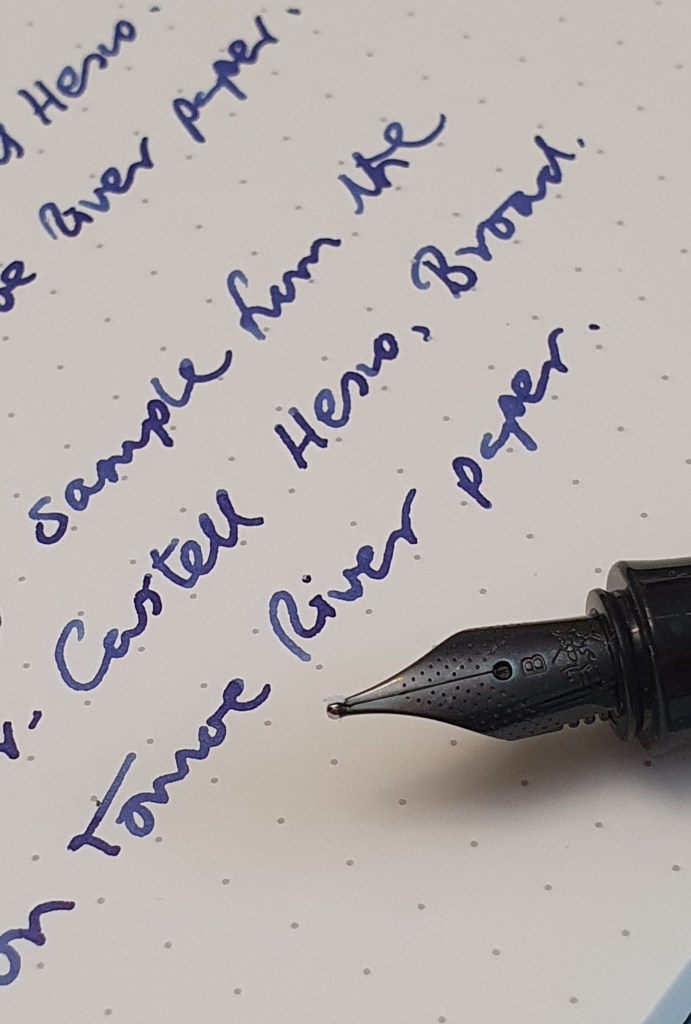 Hexo.
oe River paper.
sample from the
r, Castell Hexo, Broad.
on Tomoe River paper.
B